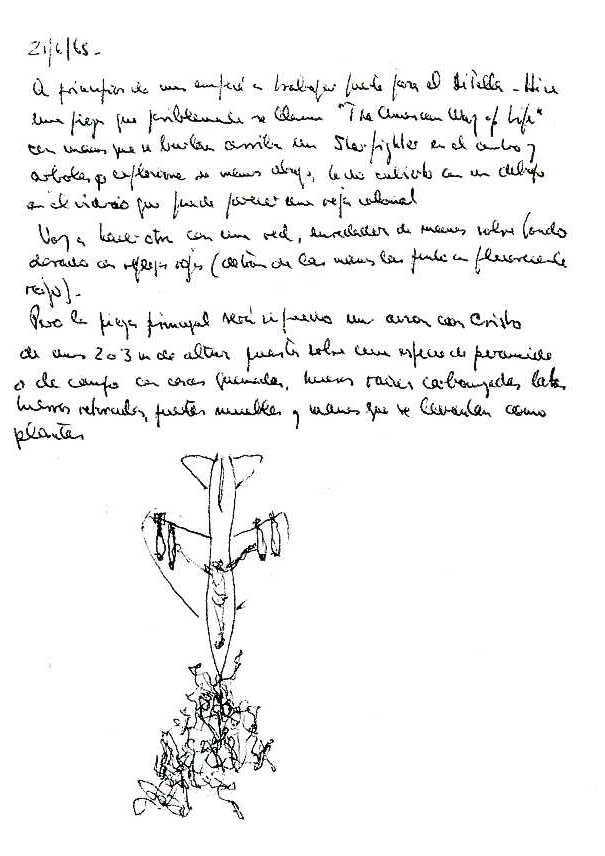 21/6/65.-
A principios de mes empecé a trabajar fuerte para el Di Tella - Hice
una pieza que posiblemente se llame "The American Way of Life"
con manos que se burlan arriba un Starfighter en el centro y
árboles explosiones manos abajo, cubierto con un dibujo
en el vidrio que puede parecer una reja colonial
Voy a hacer otra con una red, enredador de manos sobre fondo
dorado con reflejos rojos (detrás de las manos las pinto en fluorescente
rojo).-
Pero la pieza principal será un avión con Cristo
de unos 2 o 3 m de altura puesto sobre una especie de pirámide
o de campo con cosas quemadas, huesos raíces carbonizadas latas
hierros retorcidos, puertas muebles y manos que se levantan como
plantas